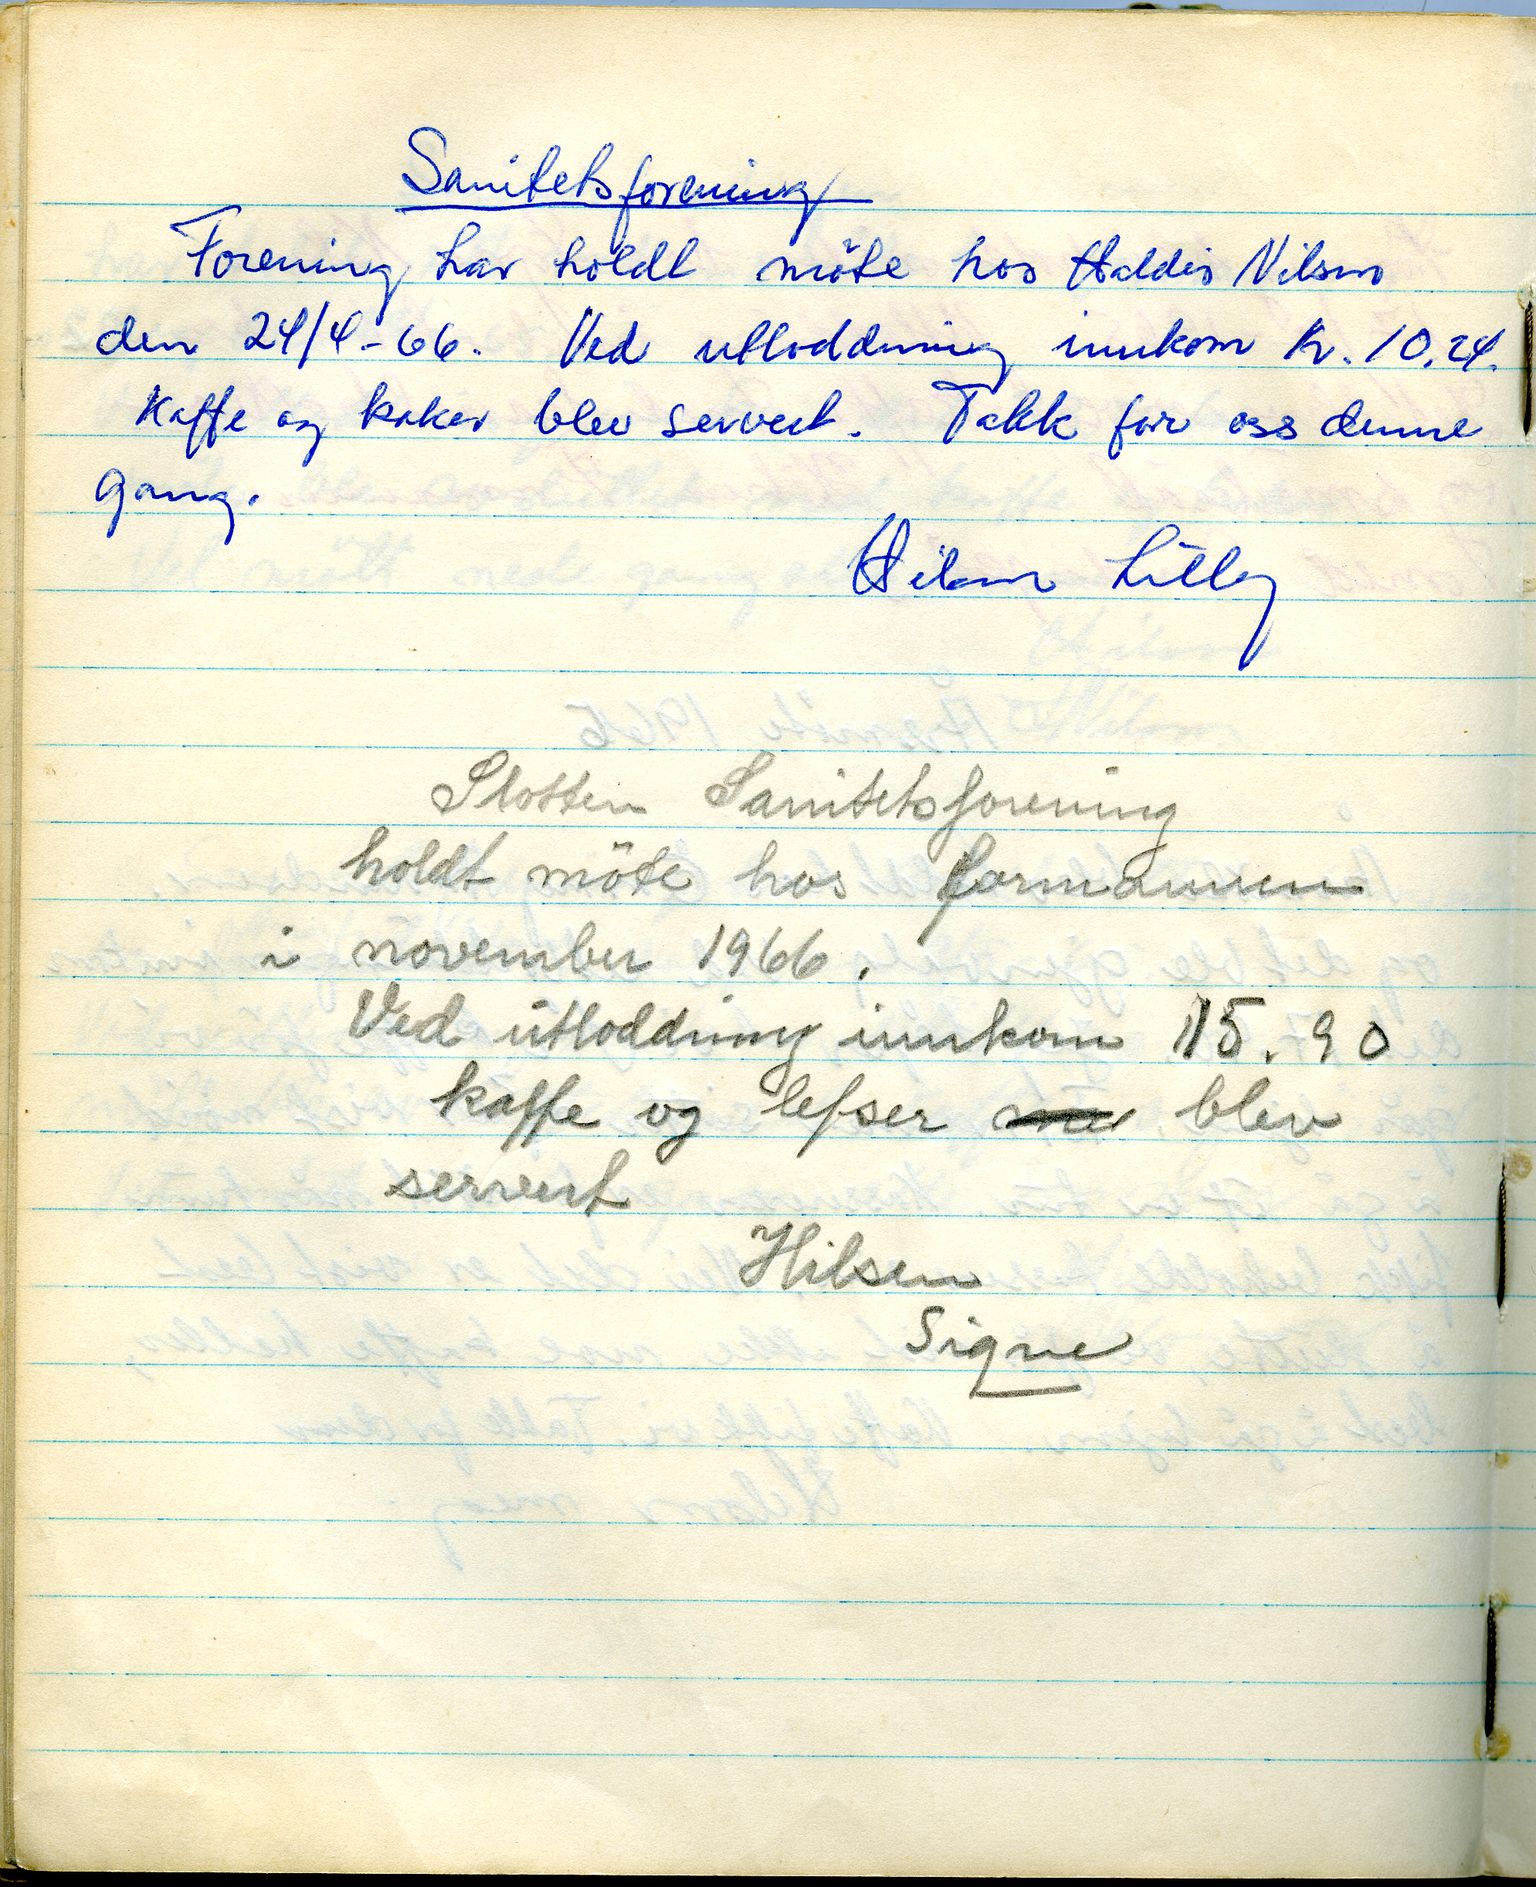 Sanitetsforening
Forening har holdt möte hos Haldis Nilsen
den 24/4-66. Ved utloddning innkom Kr. 10,24.
Kaffe og kaker blev servert. Takk for oss denne
gang.
Hilsen Lilly
Slotten Sanitetsforening
holdt möte hos formannen
i november 1966.
Ved utloddning innkom 15.90
kaffe og lefser blev
servert
Hilsen
Signe